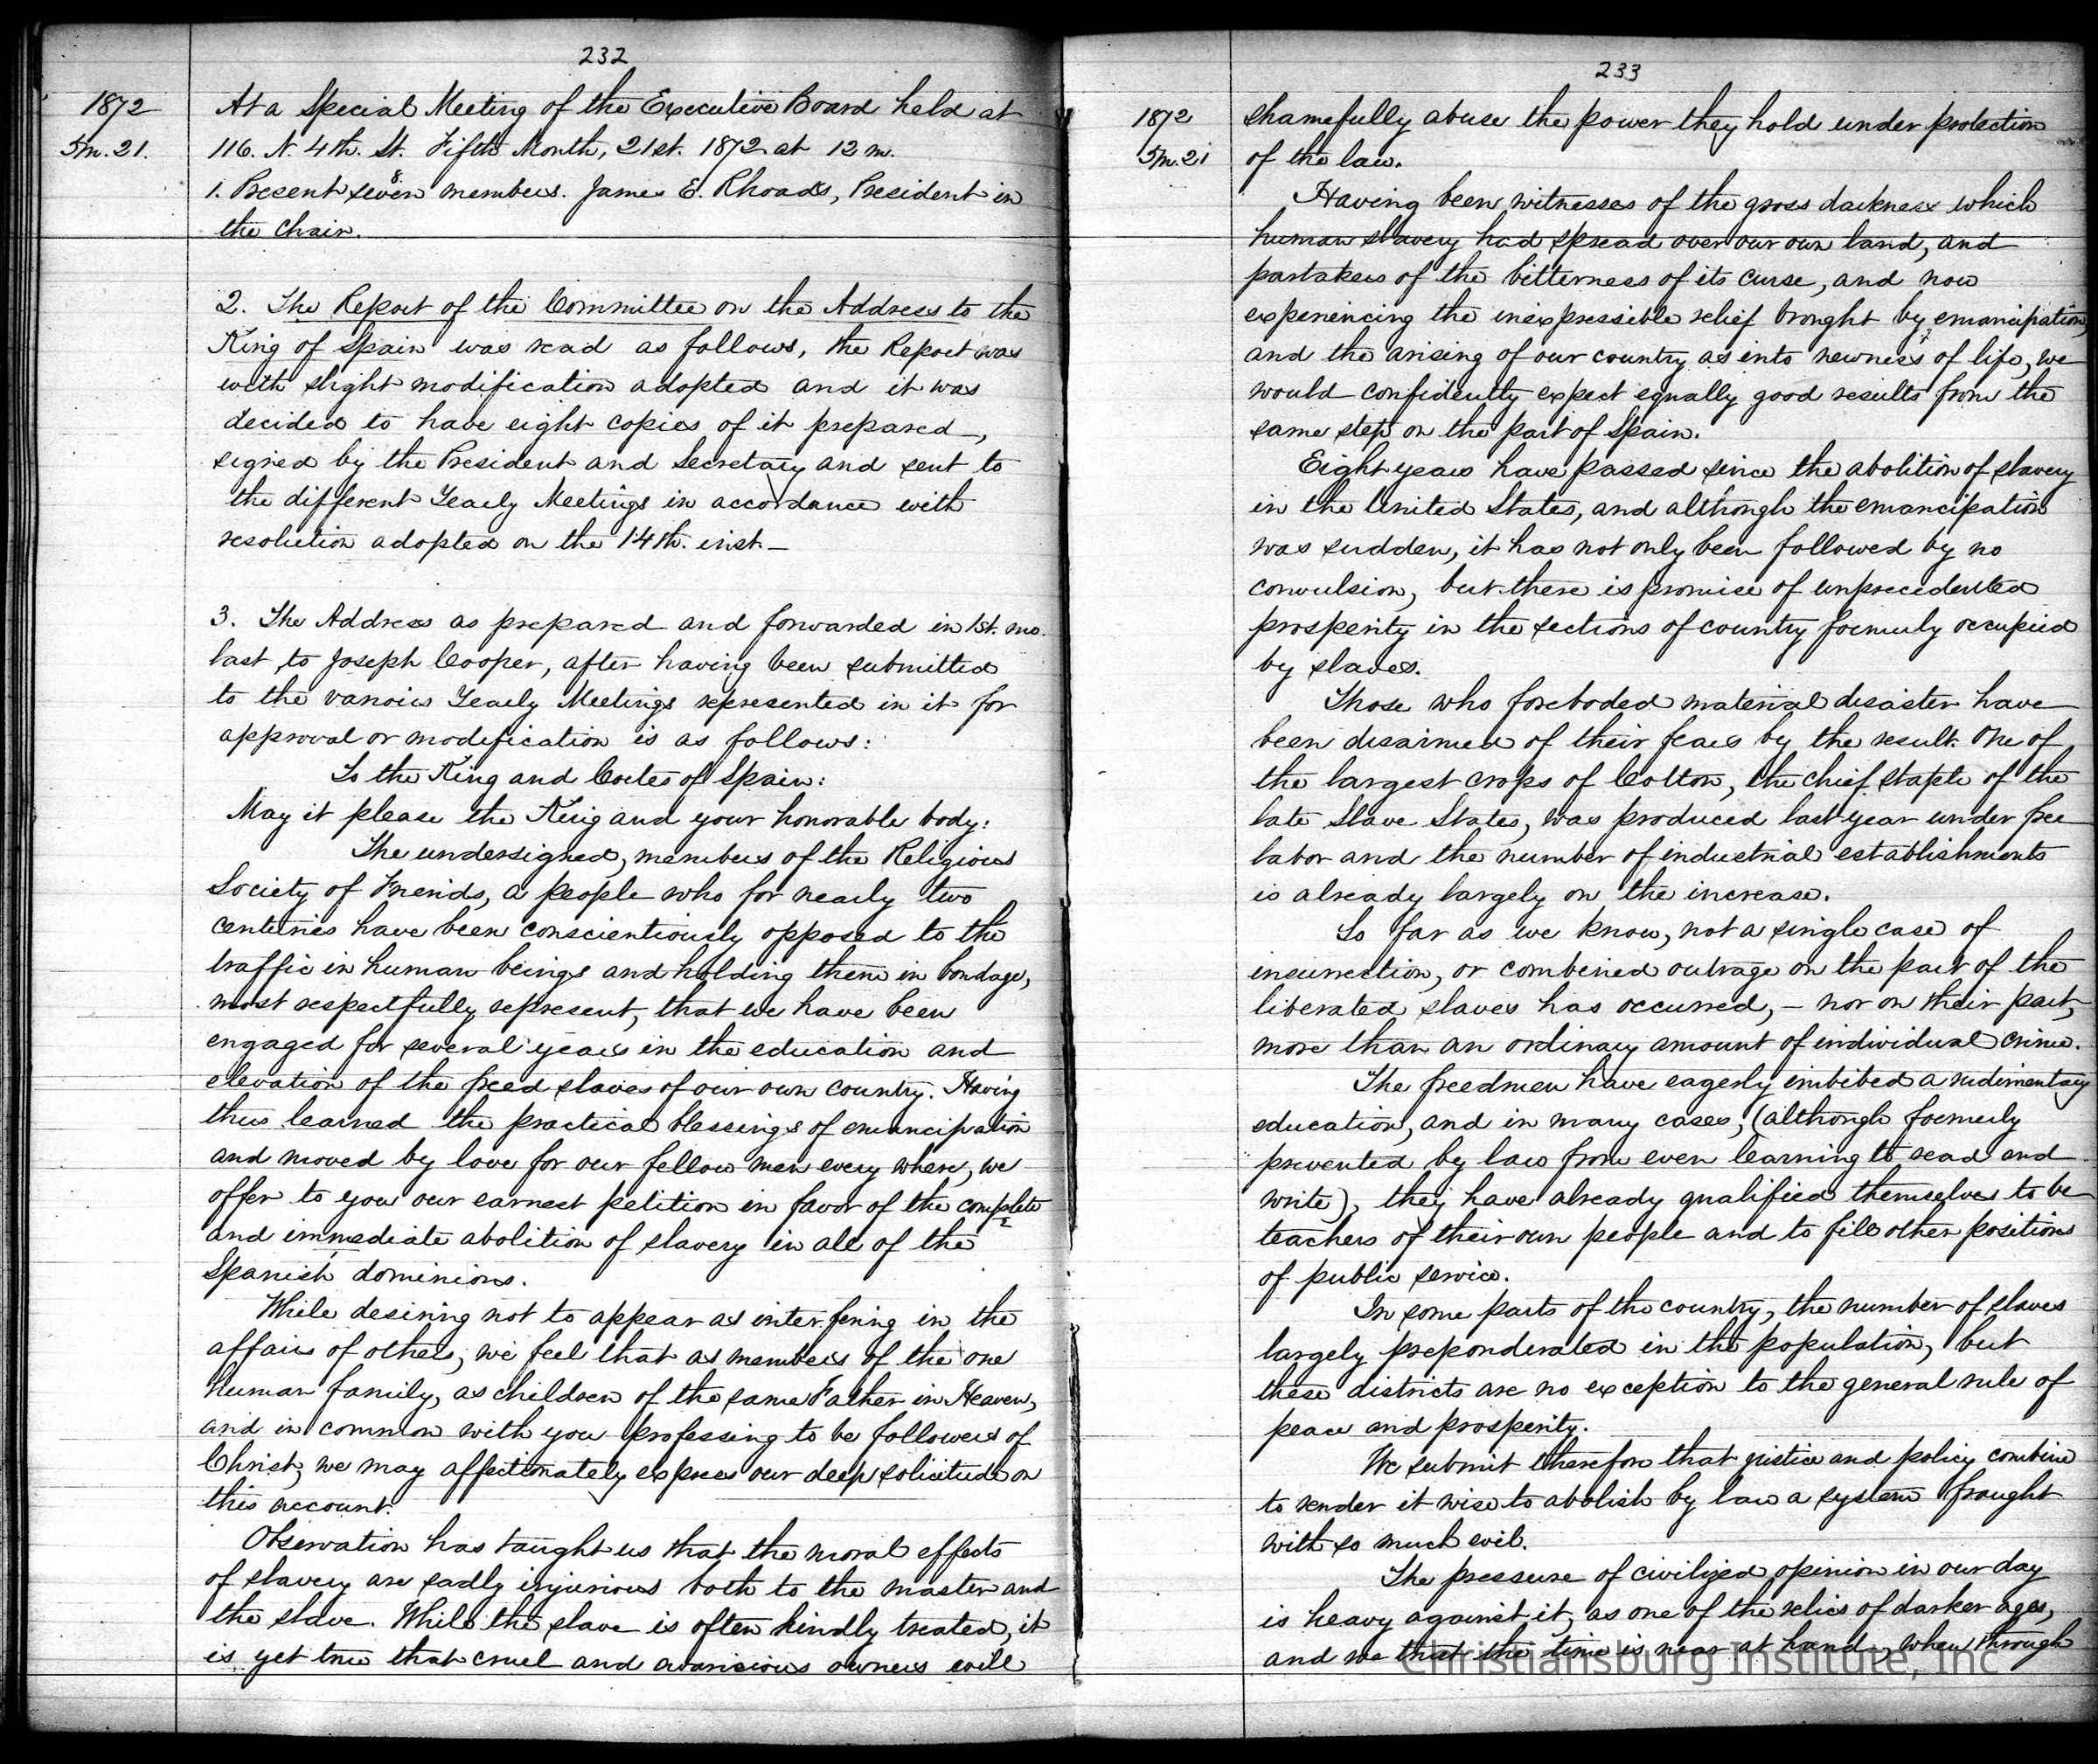 232
1872
5m.21.
At a Special Meeting of the Executive Board held at
116. N. 4th. St. Fifth Month, 21st. 1872 at 12 m.
8.
1. Present seven members. James E. Rhoads, President in
the Chair.
2. The Report of the Committee on the Address to the
King of Spain was read as follows, the Report was
with slight modification adopted and it was
decided to have eight copies of it prepared,
signed by the President and Secretary and sent to
the different Yearly Meetings in accordance with
resolution adopted on the 14th. inst.—
3. The Address as prepared and forwarded in 1st. mo.
last to Joseph Cooper, after having been submitted
to the various Yearly Meetings represented in it for
approval or modification is as follows:
To the King and Cortes of Spain:
May it please the King and your honorable body:
The undersigned, members of the Religious
Society of Friends, a people who for nearly two
centuries have been conscientiously opposed to the
traffic in human beings and holding them in bondage,
most respectfully represent, that we have been
engaged for several years in the education and
elevation of the freed slaves of our own country. Having
thus learned the practical blessings of emancipation
and moved by love for our fellow men every where, we
offer to you our earnest petition in favor of the complete
and immediate abolition of slavery in all of the
Spanish dominions.
While desiring not to appear as interfering in the
affairs of others, we feel that as members of the one
human family, as children of the same Father in Heaven,
and in common with you professing to be followers of
Christ, we may affectionately express our deep solicitude on
this account.
Observation has taught us that the moral effects
of slavery are sadly injurious both to the master and
the slave. While the slave is often kindly treated, it
is yet true that cruel and avaricious owners will
233
1872
5m.21
shamefully abuse the power they hold under protection
of the law.
Having been witnesses of the gross darkness which
human slavery had spread over our own land, and
partakers of the bitterness of its curse, and now
experiencing the inexpressible relief brought by emancipation,
and the arising of our country as into newness of life, we
would confidently expect equally good results from the
same step on the part of Spain.
Eight years have passed since the abolition of slavery
in the United States, and although the emancipation
was sudden, it has not only been followed by no
convulsion, but there is promise of unprecedented
prosperity in the sections of country formerly occupied
by slaves.
Those who foreboded material disaster have
been disarmed of their fears by the result. One of
the largest crops of Cotton, the chief staple of the
late Slave States, was produced last year under free
labor and the number of industrial establishments
is already largely on the increase.
So far as we know, not a single case of
insurrection, or combined outrage on the part of the
liberated slaves has occurred, — nor on their part,
more than an ordinary amount of individual crime.
The freedmen have eagerly imbibed a rudimentary
education, and in many cases, (although formerly
prevented by law from even learning to read and
write), they have already qualified themselves to be
teachers of their own people and to fill other positions
of public service.
In some parts of the country, the number of slaves
largely preponderated in the population, but
these districts are no exception to the general rule of
peace and prosperity.
We submit therefore that justice and policy combine
to render it wise to abolish by law a system fraught
with so much evil.
The pressure of civilized opinion in our day
is heavy against it, as one of the relics of darker ages,
and we trust the time is near at hand, when through
Christiansburg Institute, Inc